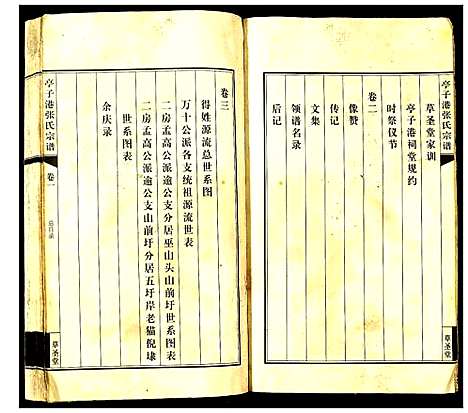 亭子港张氏宗谱
草圣堂家训
亭子港祠堂规约
时祭仪节
卷二
像赞
传记
文集
领谱名录
后记
草圣堂
卷三
得姓源流总世系图
万十公派各支统祖源流世表
二房孟高公派逾公支分居巫山头山前圩世系图表
二房孟高公派逾公支山前圩分居五圩岸老猫倪埭
世系图表
余庆录
亭子港张氏宗谱
卷一
总目录
草圣堂